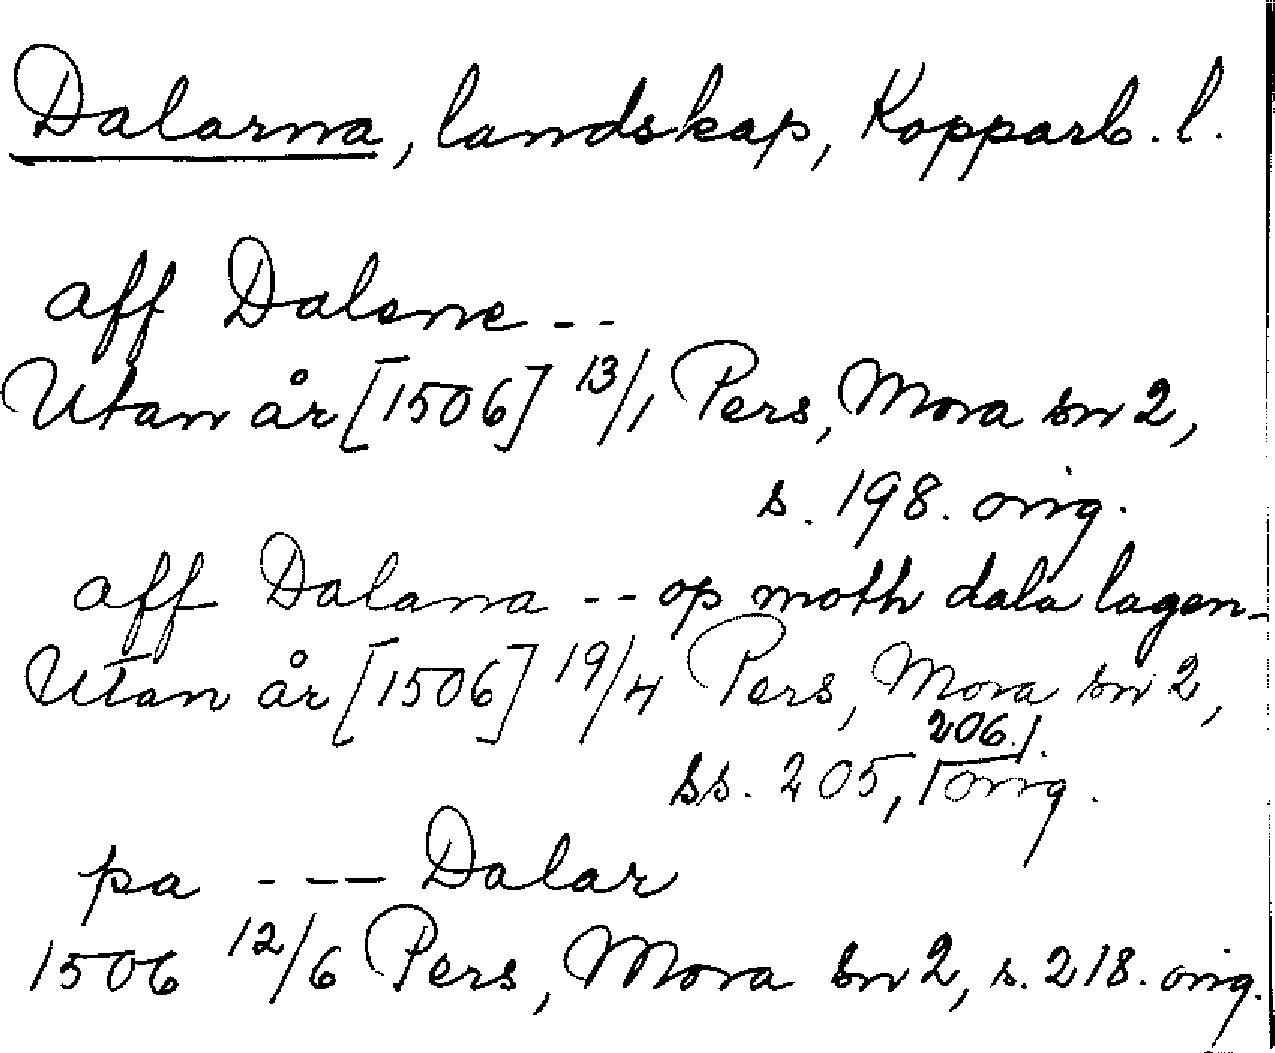 Dalarna, landskap, Kopparb. l.
aff Dalene --
Utan år [1506] 13/1 Pers, Mora sn 2,
s. 198. orig.
aff Dalana -- op moth dala lagen-
Utan år [1506] 19/4 Pers, Mora sn 2,
206.
ss. 205, orig.
pa --- Dalar
1506 12/6 Pers, Mora sn 2, s. 218. orig.